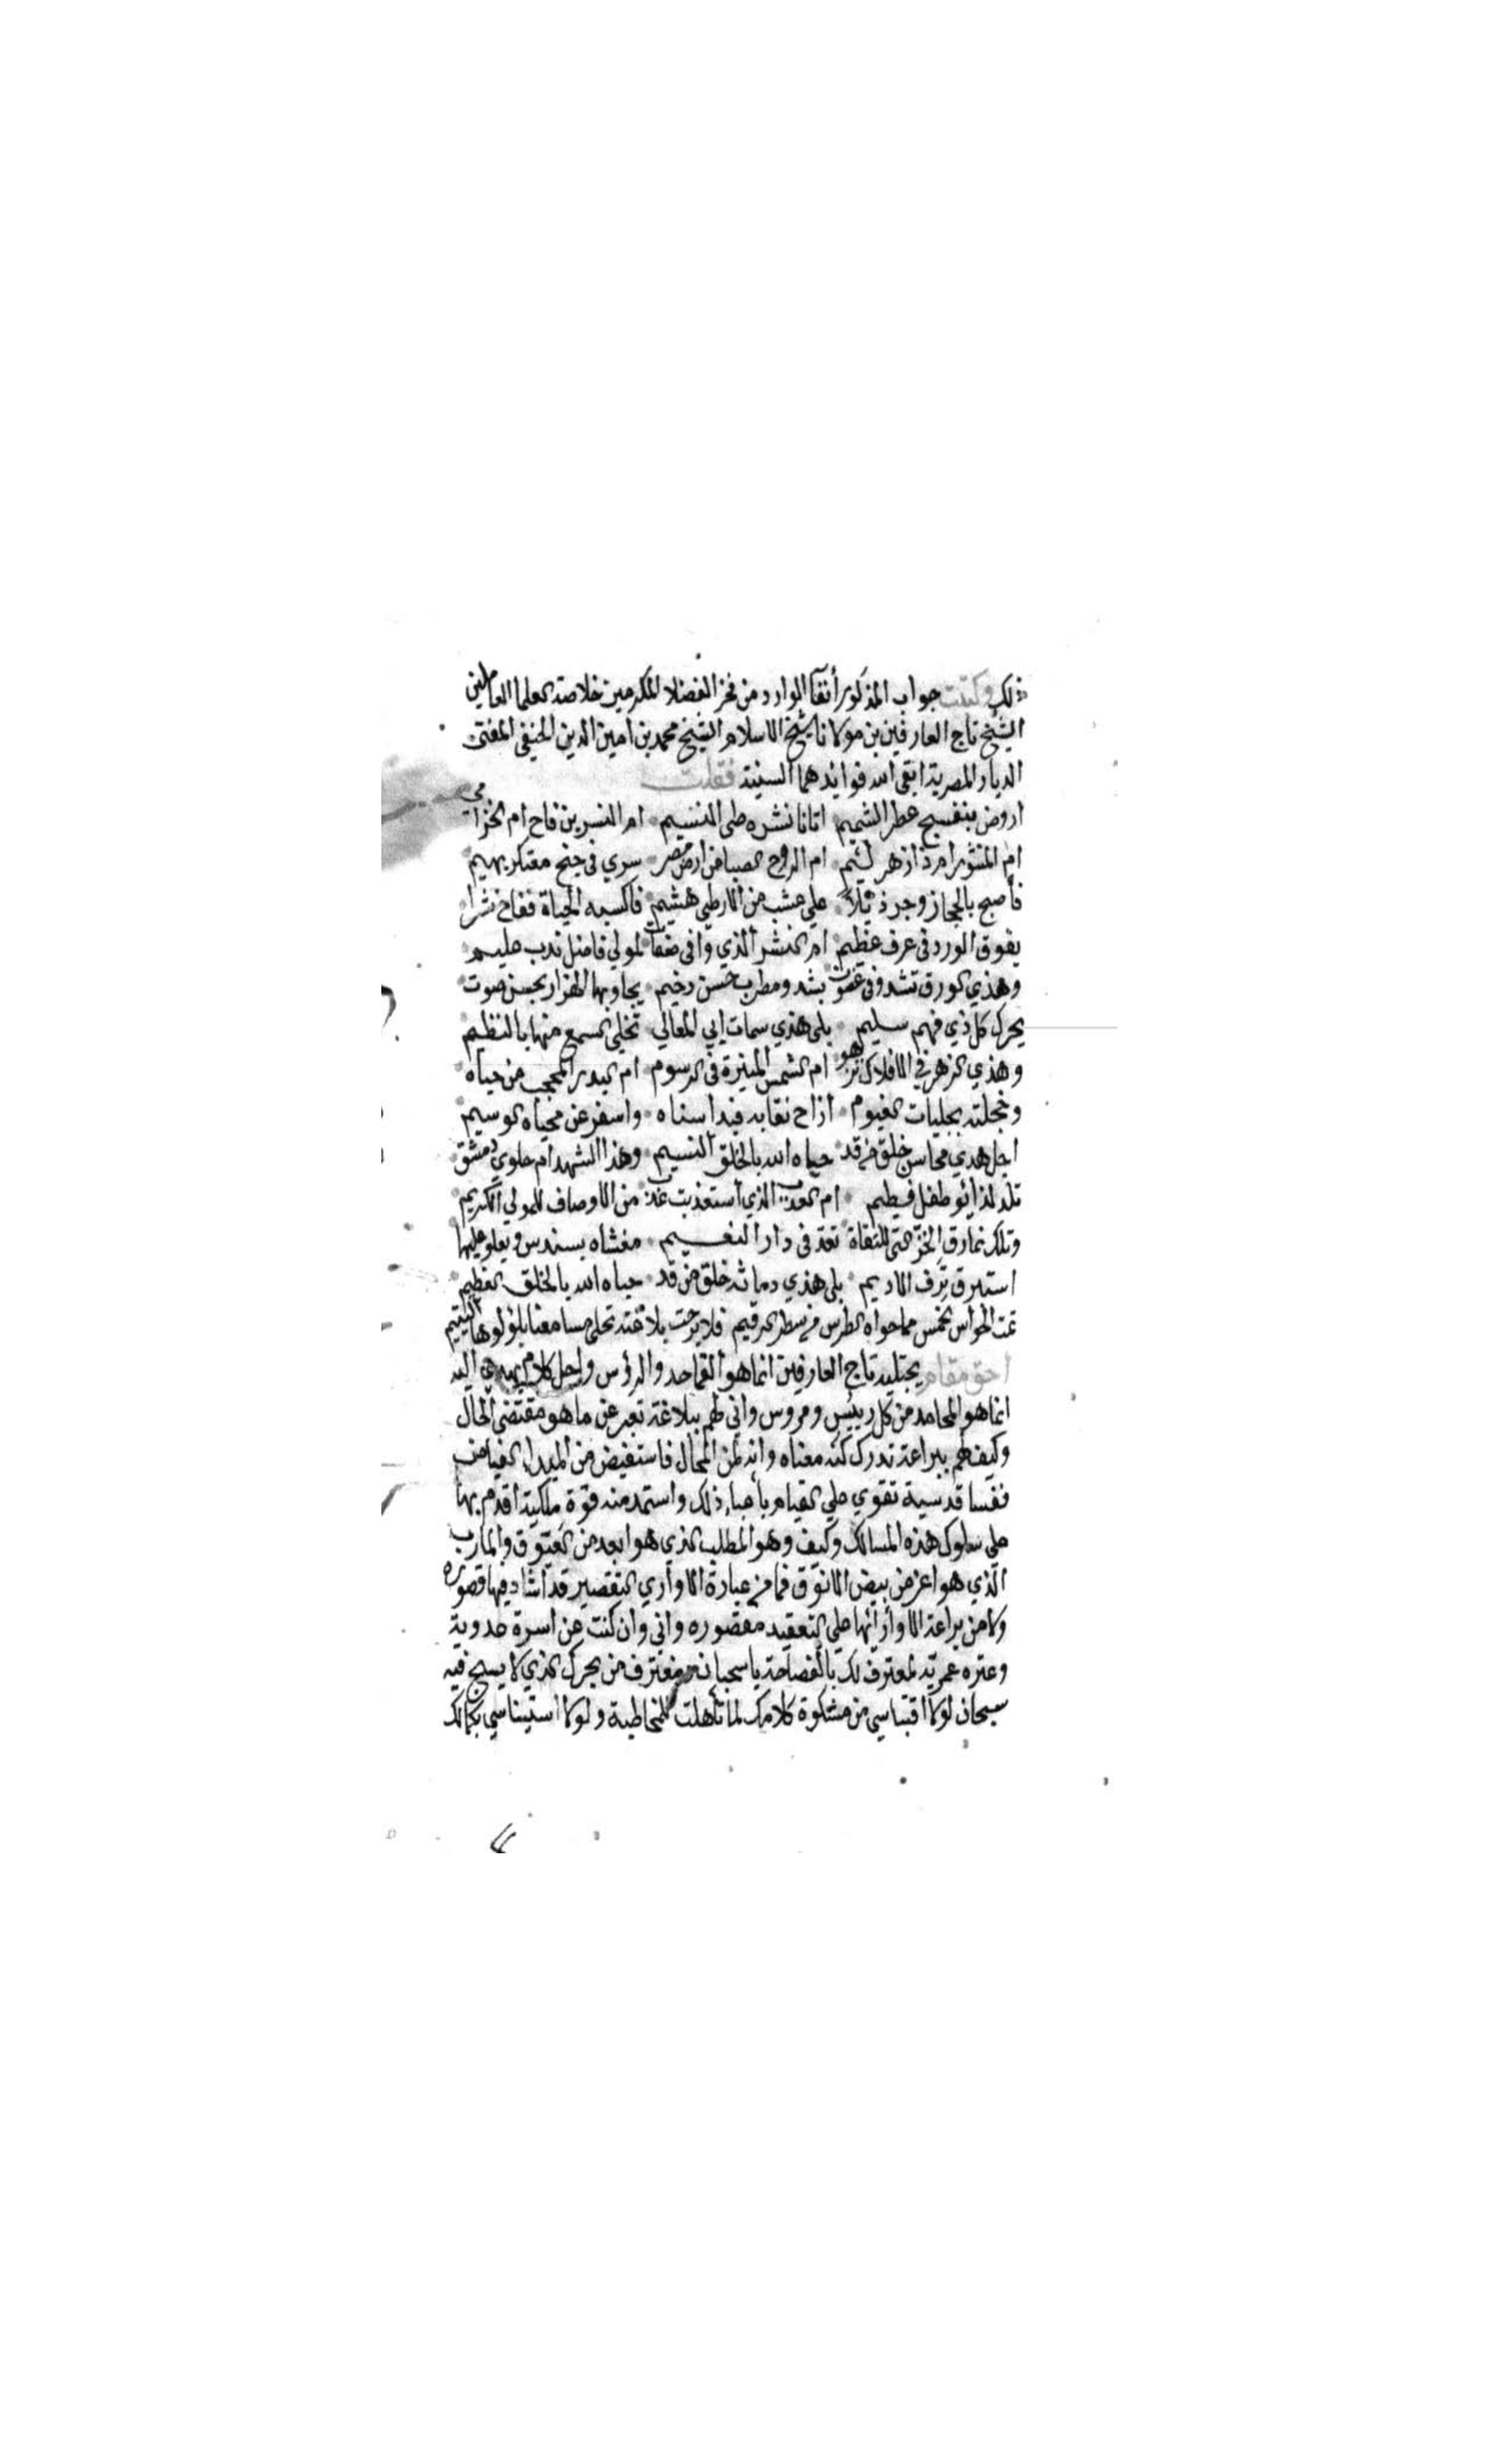 ذلك وكتبت جواب المذكور أنفا الوارد من فخر الفضلا المكرمين خلاصة العلما العاملين
الشيخ تاج العارفين بن مولانا شيخ الاسلام الشيخ محمد بن امين الدين الحنفي المفتى
الديار المصرية ابقى الله فوايدهما السنية فقلت
اروض بنفسج عطر الشميم اتانا نشره طى النسيم ام النسرين فاح ام الخزامي
ام المنثور ام ذا زهر ام الروح الصبا من ارض مصر سري فى جنح معتكر بهيم
فأصبح بالحجاز وجر ذيلا على عشب من الارطى هشيم فاكسبه الحياة ففاح نشرا
يفوق الورد فى عرف عظيم ام النشر الذي وافى لمولي فاضل ندب حليم
وهذي الورق تشدو فى غصون بشدو مطرب حسن رخيم يجاوبها الهزار بحسن صوت
يحرك كل ذي فهم سليم بلى هذي سمات ابي المعالي تحلي السمع منها بالنظيم
وهذي الزهر في الافلاك تزهو ام الشمس المنيرة فى الرسوم ام البدر المحجب من حياه
وخجلته بجلباب الغيوم ازاح نقابه فبدا سناه واسفر عن محياه الوسيم
اجل هدي محاسن خلق من قد حباه الله بالخلق وهذا الشهد ام حلوي دمشق
تلذ لذايق طفل فطيم ام العذب الذي استعذبت من الاوصاف للمولي الكريم
وتلك نمارق الخز حتى للتقاة تعد فى دار النعيم مغشاه بسندس ويعلو عليها
استبرق ترف الاديم بلى هذي دماثة خلق من قد حباه الله بالخلق العظيم
تمت الحواس الخمس مما حواه الطرس من سطر الرقيم فلا برحت بلاغته تحلى مسامعنا بلؤلوها اليتيم
احق مقام يجتليه تاج العارفين انما هو القماحد والرؤس واجل كلام يهدي اليه
انما هو المحامد من كل رييس ومروس واني لهم ببلاغة تعبر عن ما هو مقتضى الحال
وكيف لهم ببراعة تدرك كنه معناه وانه لمن المحال فاستفيض من المبدا الفياض
نفسا قدسية تقوي على القيام بأعباء ذلك واستمد منه قوة ملكية اقدم بها
على سلوك هذه المسالك وكيف وهو المطلب الذي هو ابعد من العيوق والمارب
الذي هو اعز من بيض الانوق فما من عبارة الا وأري التقصير قد اشاد فيها قصوره
وكا من براعة الا واراها على التعقيد مقصوره واني وان كنت من اسرة عدوية
وعتره عمرية لمعترف لك بالفصاحة يا سحبان مغترف من بحرك الذي لا يسبح فيه
سبحان لولا اقتباسي من مشكوة كلامك لما تأهلت للمخاطبة ولولا استيناسي بكمالك